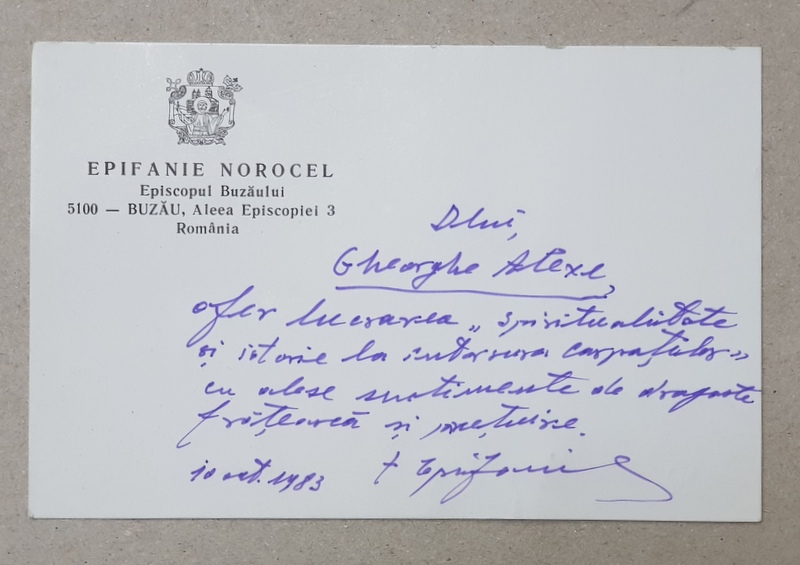 EPIFANIE NOROCEL
Episcopul Buzăului
5100 — BUZĂU, Aleea Episcopiei 3
România
Dlui,
Gheorghe Alexe,
ofer lucrarea „Spiritualitate
și istorie la întorsura Carpaților”
cu alese sentimente de dragoste
frățească și prețuire.
10 oct. 1983 † Epifanie